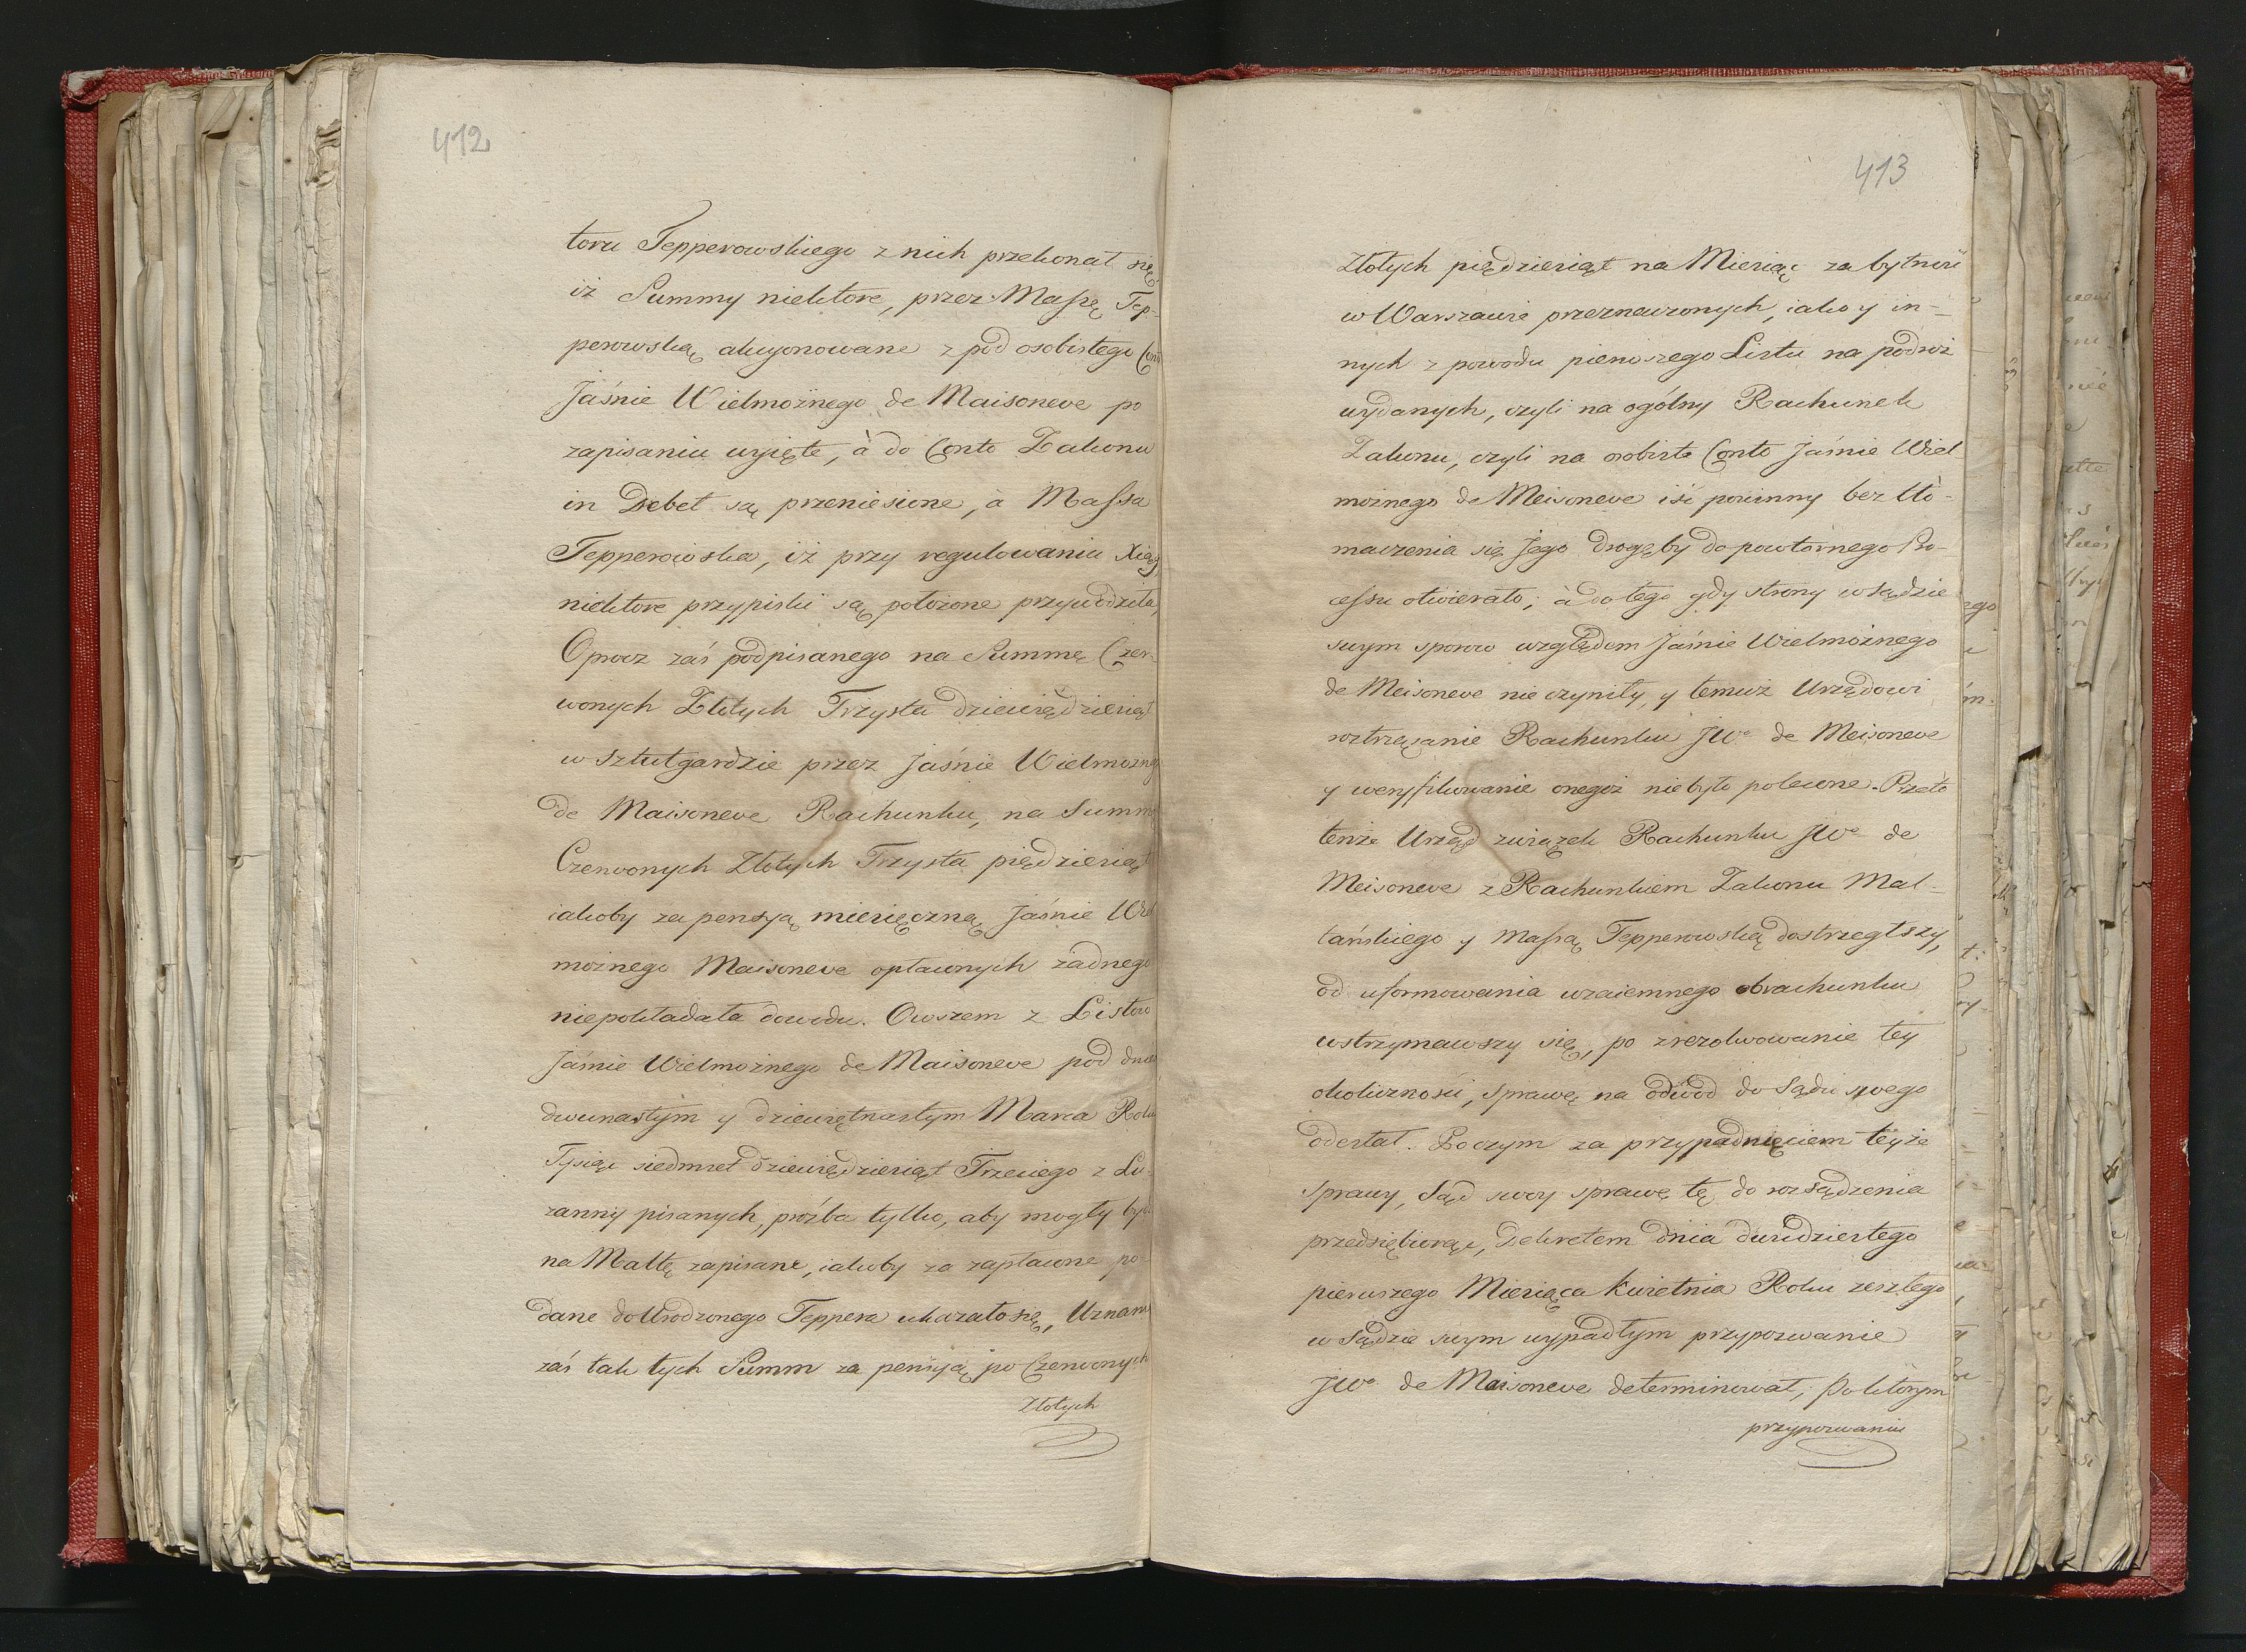 412
toru Tepperowskiego z nich przekonał się
iż Summy niektore, przez Massę Tep-
perowską akcyonowane z pod osobistego Con
Jaśnie Wielmożnego de Maisoneve po
zapisaniu wyięte, à do Conto Zakonu
in Debet są przeniesione, à Massa
Tepperowska, iż przy regulowaniu Xiąg,
niektore przypiski są położone przywodziła,
Oprocz zaś podpisanego na Summę Czer-
wonych Złotych Trzysta dziewiędziesiąt
w Sztutgardzie przez Jaśnie Wielmożny
de Maisoneve Rachunku, na Summ
Czerwonych Złotych Trzysta pięдziesiąt
iakoby za pensyą miesięczną Jaśnie Wiel
możnego Maisoneve opłaconych żadnego
niepokładała dowodu. Owszem z Listow
Jaśnie Wielmożnego de Maisoneve pod dniem
dwunastym y dziewiętnastym Marca Roku
Tysiąc siedmset dziewiędziesiąt Trzeciego z Lu-
zanny pisanych, proźba tylko, aby mogły być
na Maltę zapisane, iakoby za zapłacone po
dane do Urodzonego Teppera ukazało się, Uznani
zaś tak tych Summ za pensyą po Czerwonych
Złotych
413
Złotych pięдziesiąt na Miesiąc za bytności
w Warszawie przeznaczonych, iako y in-
nych z powodu pierwszego Listu na podroż
wydanych, czyli na ogólny Rachunek
Zakonu, czyli na osobiste Conto Jaśnie Wiel
możnego de Meisoneve iść powinny bez tłó-
maczenia się Jego drogę by do powtórnego Pro-
cessu otwierało; à do tego gdy strony w Sądzie
swym sporow względem Jaśnie Wielmożnego
de Meisoneve nie czyniły, y temuż Urzędowi
roztrząsanie Rachunku JWo de Meisoneve
y weryfikowanie onegoż niebyło polecone. Przeto
tenże Urząd związek Rachunku JWo de
Meisoneve z Rachunkiem Zakonu Mal-
tańskiego y Massą Tepperowską dostrzegłszy,
od uformowania wzaiemnego obrachunku
wstrzymawszy się, po zrezolwowanie tey
okoliczności, sprawę na odwod do Sądu swego
odesłał. Poczym za przypadnięciem teyże
sprawy, Sąd swoy sprawę tę do rozsądzenia
przedsiębiorąc, Dekretem dnia dwudziestego
pierwszego Miesiąca Kwietnia Roku zeszłego
w Sądzie swym wypadłym przypozwanie
JWo de Maisoneve determinował; Po którym
przypozwaniu